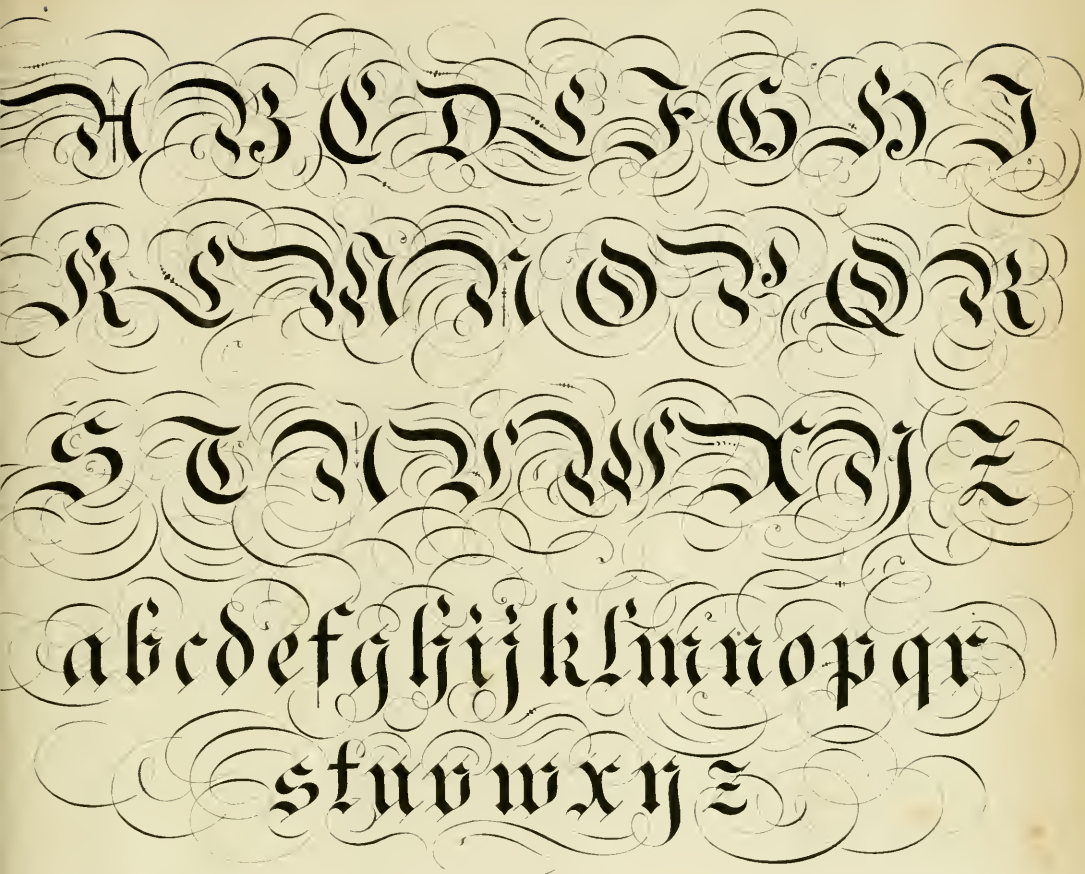 A B C D E F G H I
K L M N O P Q R
S T U V W X Y Z
a b c d e f g h i j k l m n o p q r
s t u v w x y z